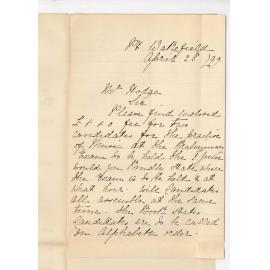 Pt Wakefield
April 25th /99
Mr Hodge
Sir
Please find enclosed
£1.1.0 fee for two
candidates for the practice
of Music at the Preliminary
Exam to be held the 1 June
would you kindly state where
the Exam is to be held & at
what hour. Will Candidates
all assemble at the same
time. The Book states
Candidates are to be called
in Alphabetic order.